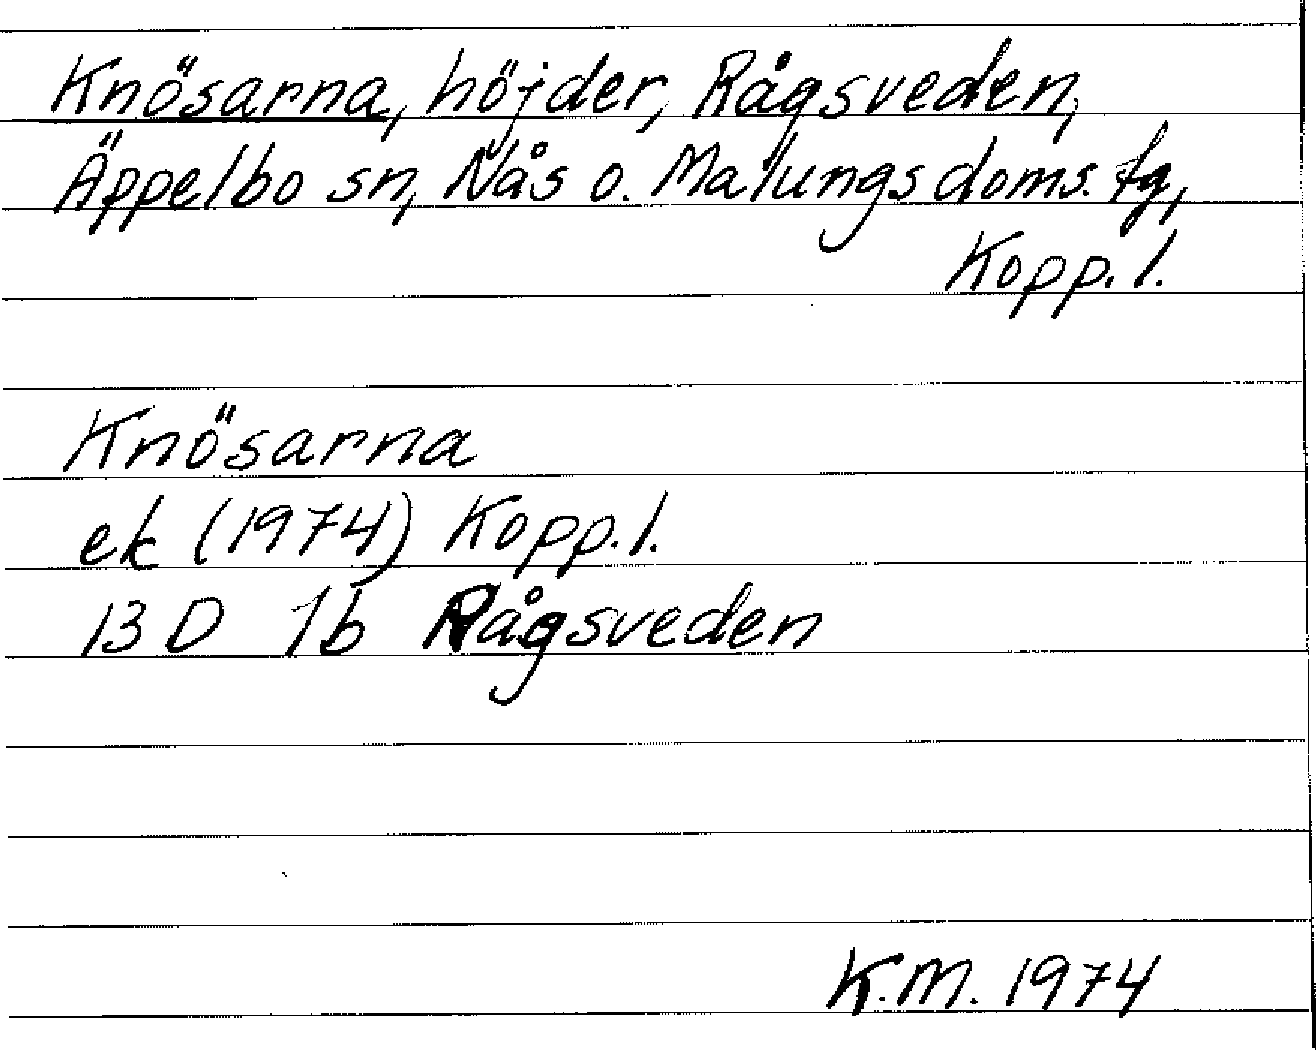 Knösarna, höjder, Rågsveden,
Äppelbo sn, Nås o. Malungs doms. tg,
Kopp. l.
Knösarna
ek (1974) Kopp. l.
13 D 1b Rågsveden
K.M. 1974